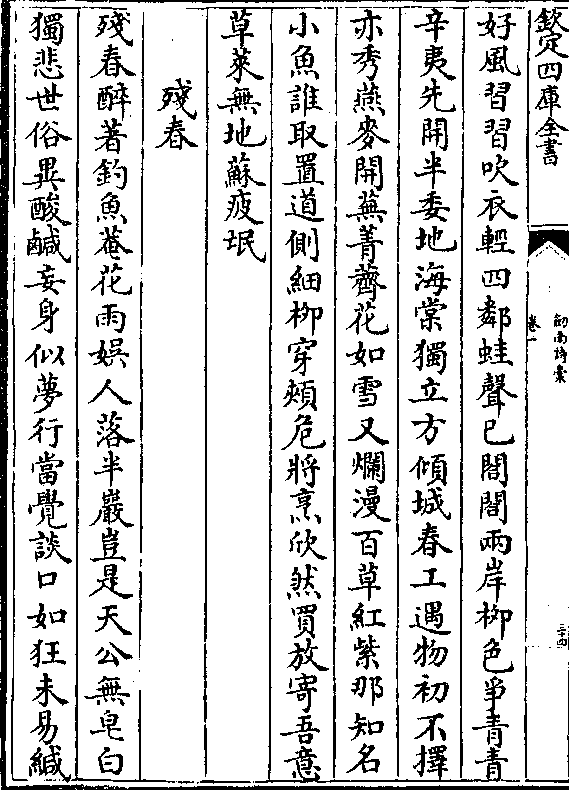 欽定四庫全書
劍南詩稾
卷一
二十四
好風習習吹衣輕四鄰蛙聲已閤閤兩岸柳色爭青青
辛夷先開半委地海棠獨立方傾城春工遇物初不擇
亦秀燕麥開蕪菁薺花如雪又爛漫百草紅紫那知名
小魚誰取置道側細柳穿頰危將烹欣然買放寄吾意
草萊無地蘇疲氓
殘春
殘春醉著釣魚菴花雨娛人落半巖豈是天公無皂白
獨悲世俗異酸鹹妄身似夢行當覺談口如狂未易緘